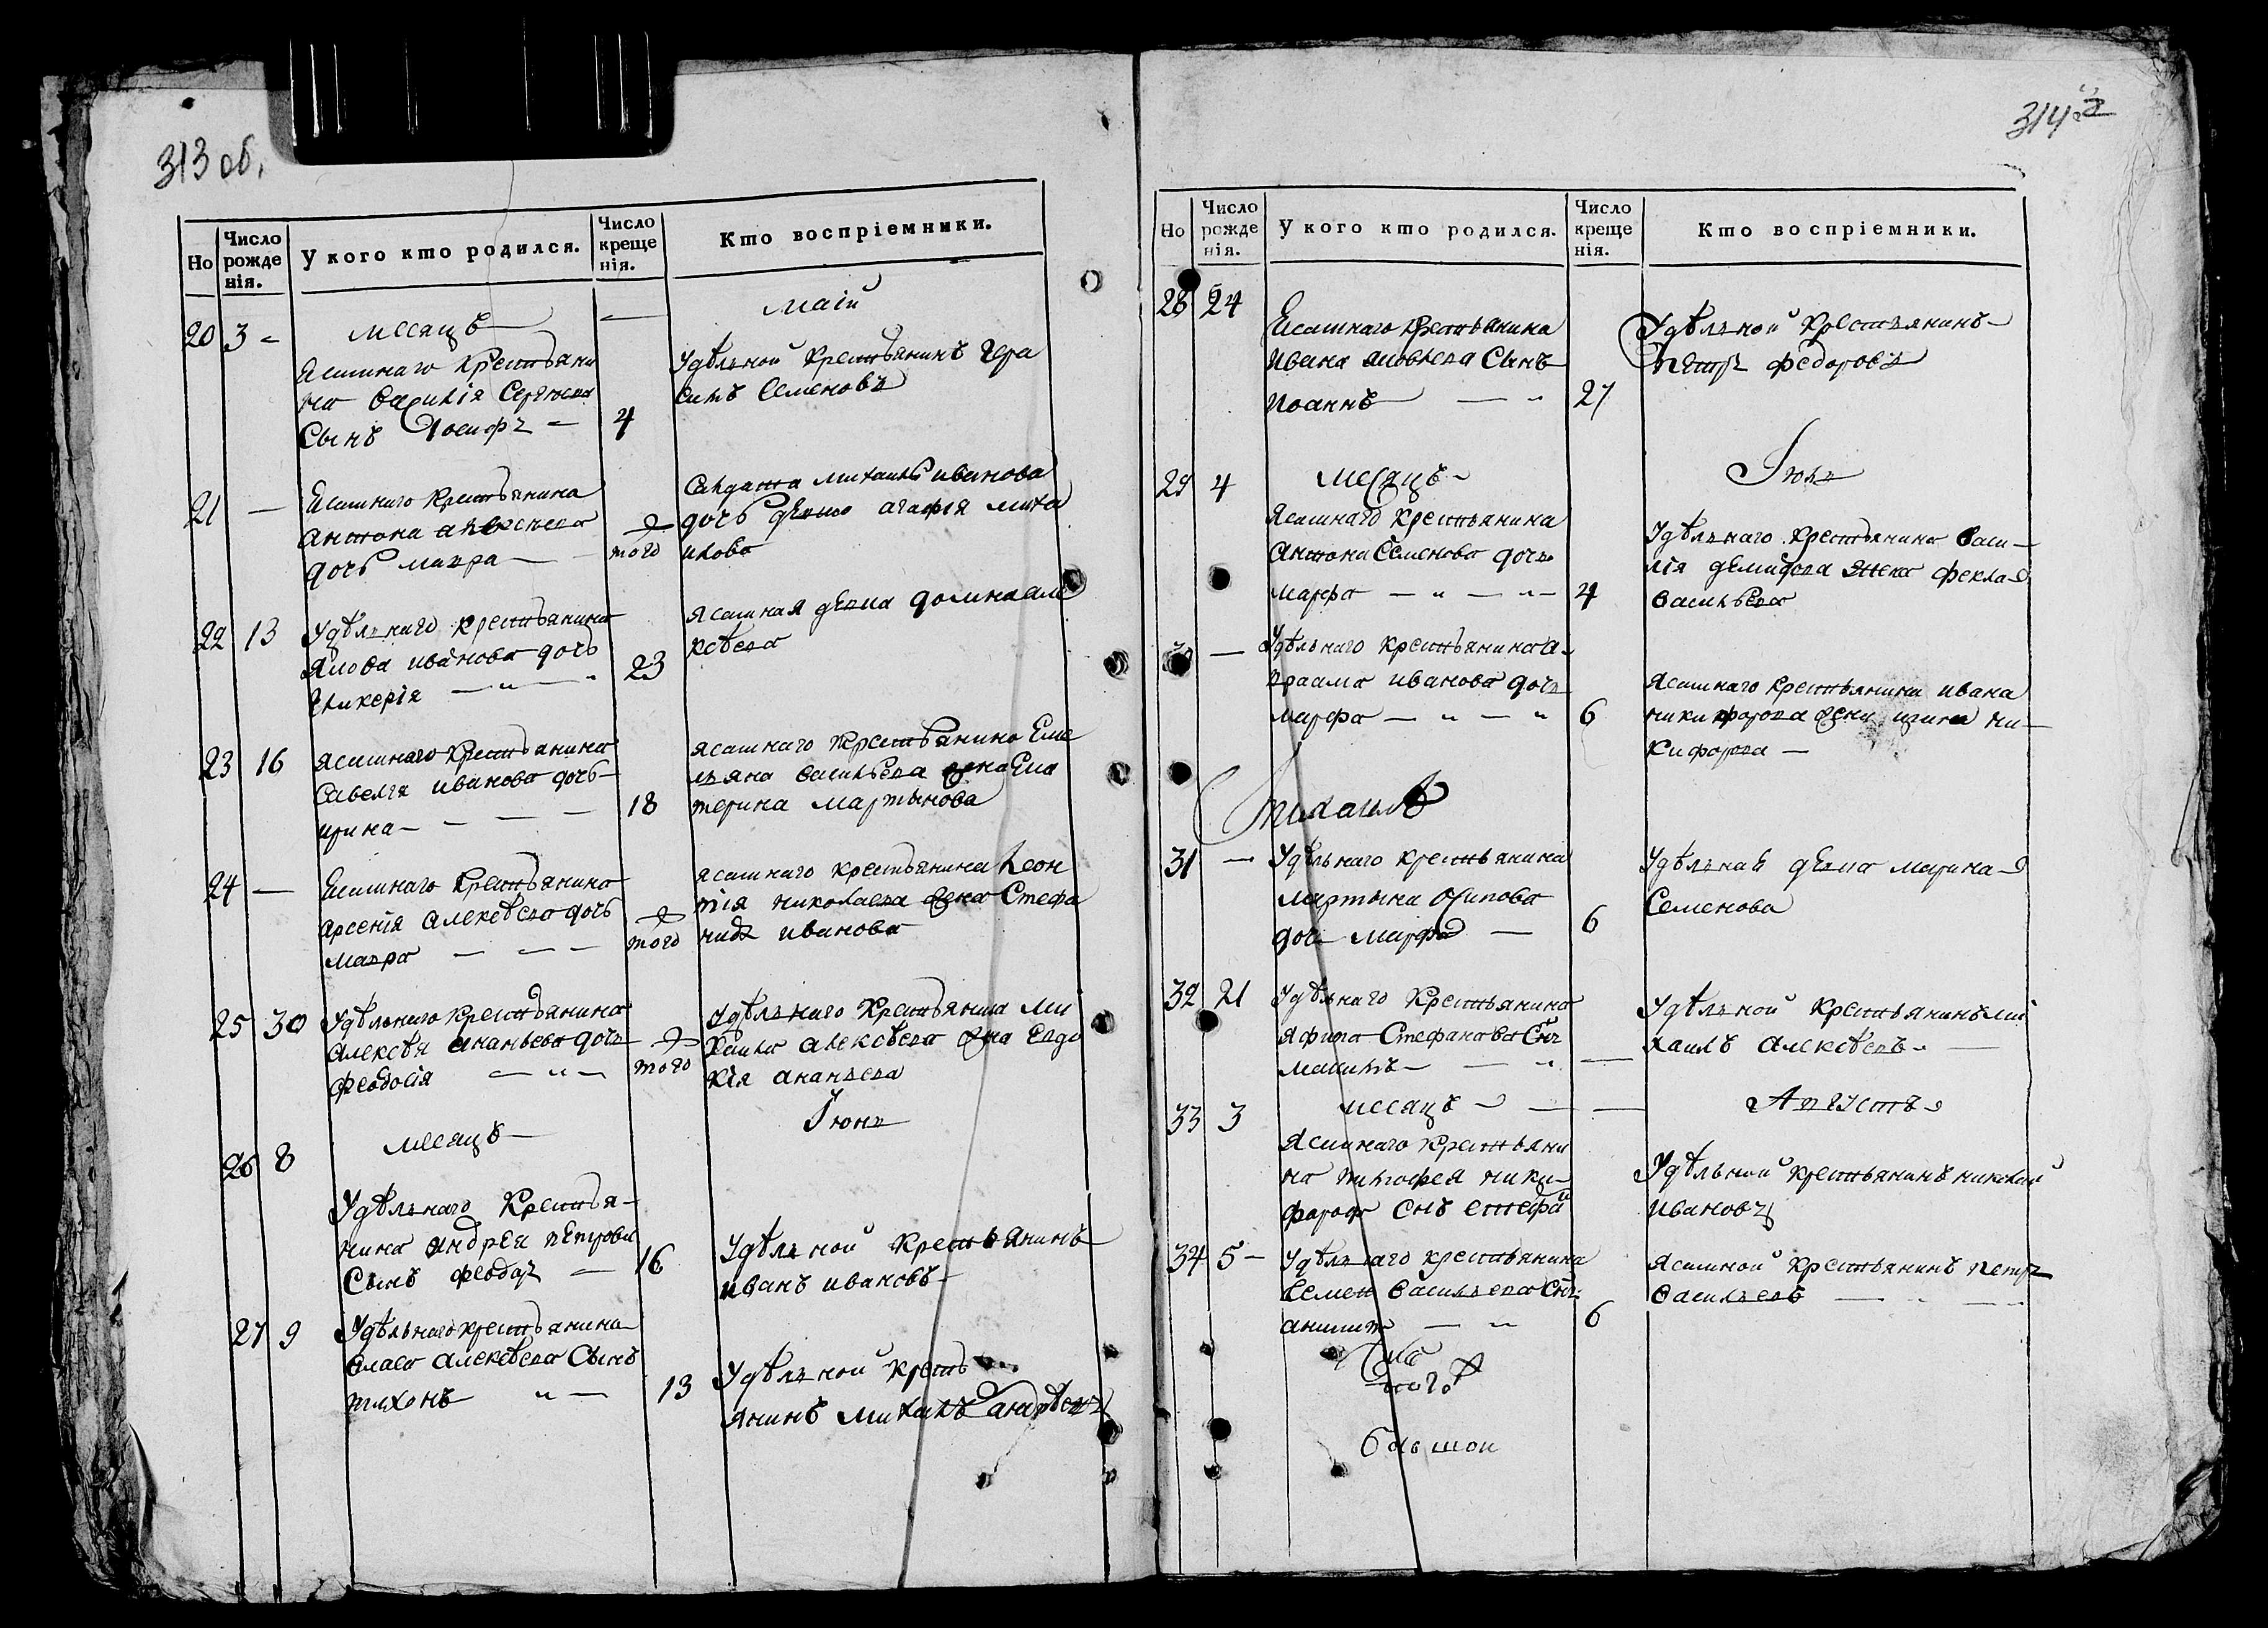 313 об.
Но
Число рожде нія.
У кого кто родился.
Число креще нія.
Кто воспріемники.
месяцъ — маій
20 3 -
Ясашнаго крестьяни
на василія Сергѣева
Сынъ Іосифъ - 4
Удѣльной крестьянинъ Гера
симъ Семеновъ
21 —
Ясашнаго крестьянина
антона
дочь мавра — того
михаила иванова
дочь девка агафія миха
илова
22 13
Удѣльнаго крестьянина
Якова иванова дочь
Гликерія — 23
Ясашная девка домна але
ксѣева
23 16
ясашнаго крестьянина
Савелія иванова дочь
ирина - 18
ясашнаго крестьянина Еме
льяна васильева жена Ека
терина мартынова
24 —
Ясашнаго крестьянина
арсенія алексѣева дочь
мавра — того
ясашнаго крестьянина леон
тія николаева жена Стефа
нида иванова
25 30
Удѣльнаго крестьянина
алексѣя ананьева дочь
феодосія — того
Удѣльнаго крестьянина ми
хаила алексѣева жена Евдо
кія ананьева
месяцъ — Іюнь
26 8
Удѣльнаго крестья-
нина андрея петрова
Сынъ феодоръ — 16
Удѣльной крестьянинъ
иванъ ивановъ -
27 9
Удѣльнаго крестьянина
власа алексѣева Сынъ
тихонъ — 13
Удѣльной кресть
янинъ михаилъ андрѣевъ
314
Но
Число рожде нія.
У кого кто родился.
Число креще нія.
Кто воспріемники.
28 24
Ясашнаго крестьянина
ивана яковлева Сынъ
иоаннъ — 27
Удѣльной крестьянинъ
петръ федоровъ
месяцъ - Іюль
29 4
Ясашнаго крестьянина
антона Семенова дочь
марфа — 4
Удѣльнаго крестьянина васи-
лія демидова жена фекла
васильева
30 —
Удѣльнаго крестьянина а-
враама иванова дочь
марфа — 6
Ясашнаго крестьянина ивана
никифорова жена ирина ни-
кифорова —
Михаилъ
31 —
Удѣльнаго крестьянина
мартына Осипова
дочь марфа — 6
Удѣльная девка марина
Семенова
32 21
Удѣльнаго крестьянина
Стефанова Снъ
—
Удѣльной крестьянинъ ми
хаилъ алексѣевъ —
месяцъ — Августъ
33 3
Ясашнаго крестьяни
на тимофея ники-
форова Снъ
Удѣльной крестьянинъ николай
ивановъ
34 5 -
Удѣльнаго крестьянина
Семена васильева Снъ
аникита — 6
Ясашной крестьянинъ петръ
васильевъ —